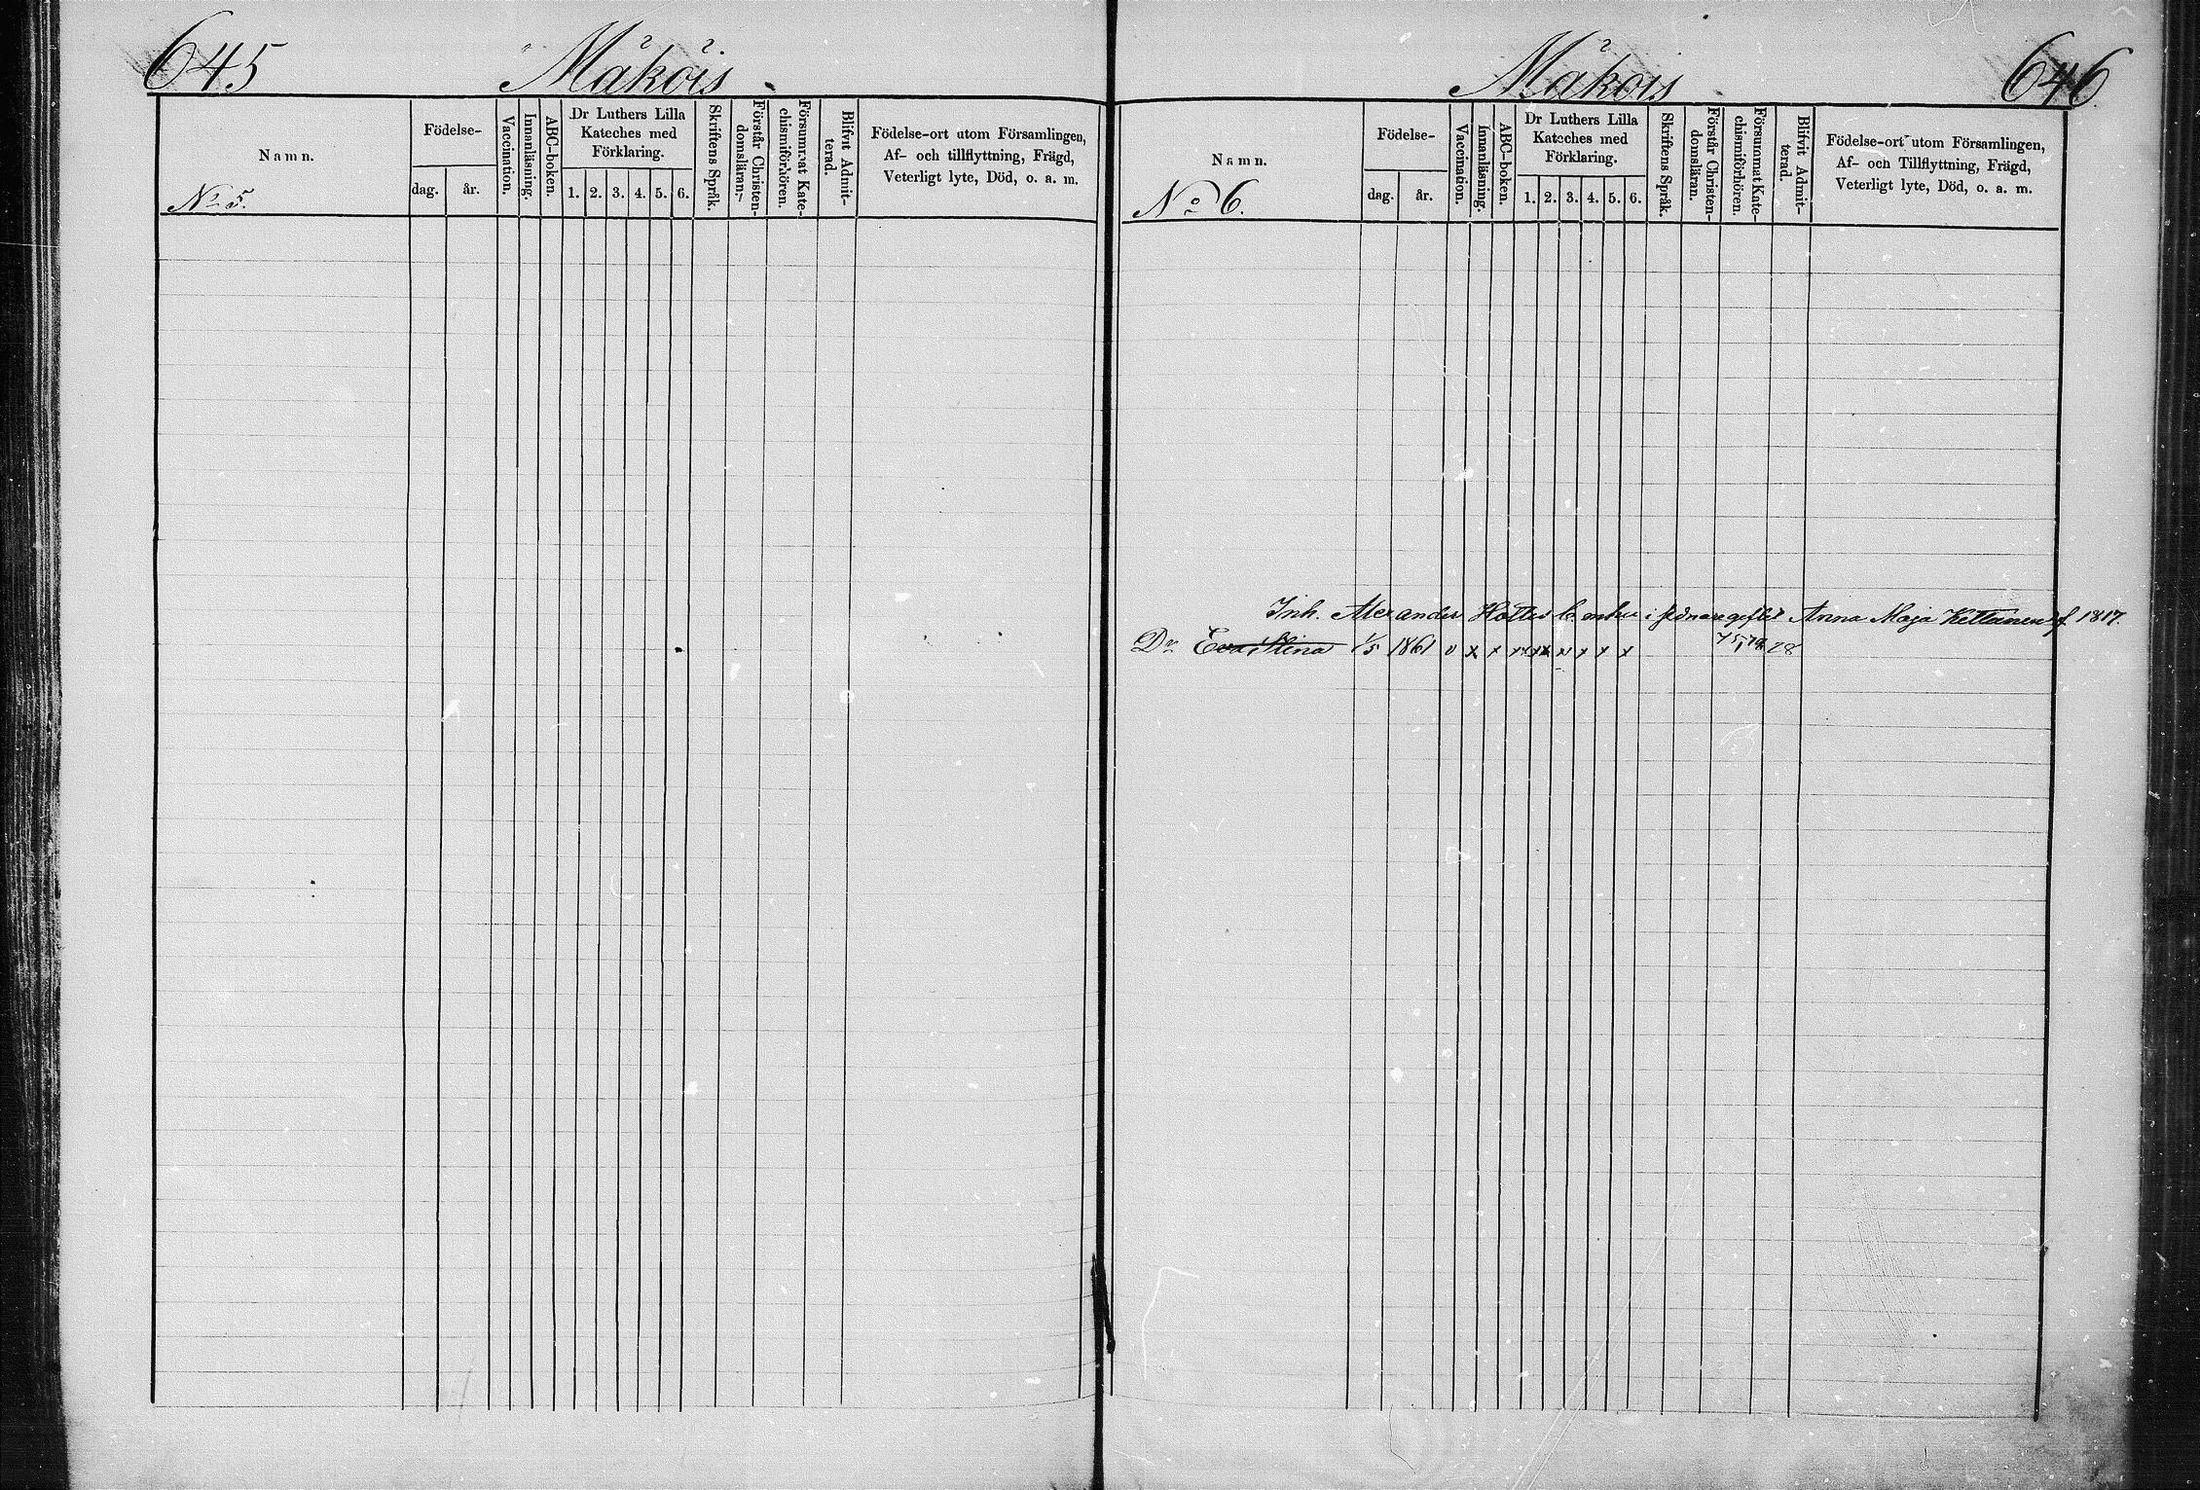 645 Mäköis
Namn.
Födelse-
dag. år.
Vaccination.
Innanläsning.
ABC-boken.
Dr Luthers Lilla
Kateches med
Förklaring.
1. 2. 3. 4. 5. 6.
Skriftens Språk.
Förstår Christen-
domsläran.
Försummat Kate-
chismiförhören.
Blifvit Admit-
terad.
Födelse-ort utom Församlingen,
Af- och tillflyttning, Frägd,
Veterligt lyte, Död, o. a. m.
No 5.
Mäköis 646
Namn.
Födelse-
dag. år.
Vaccination.
Innanläsning.
ABC-boken.
Dr Luthers Lilla
Kateches med
Förklaring.
1. 2. 3. 4. 5. 6.
Skriftens Språk.
Förstår Christen-
domsläran.
Försummat Kate-
chismiförhören.
Blifvit Admit-
terad.
Födelse-ort utom Församlingen,
Af- och Tillflyttning, Frägd,
Veterligt lyte, Död, o. a. m.
No 6.
Inh. Alexander enka i Anna Maja f 1817.
Dr Eva Stina 1/5 1861 v x x x x x x x x 78